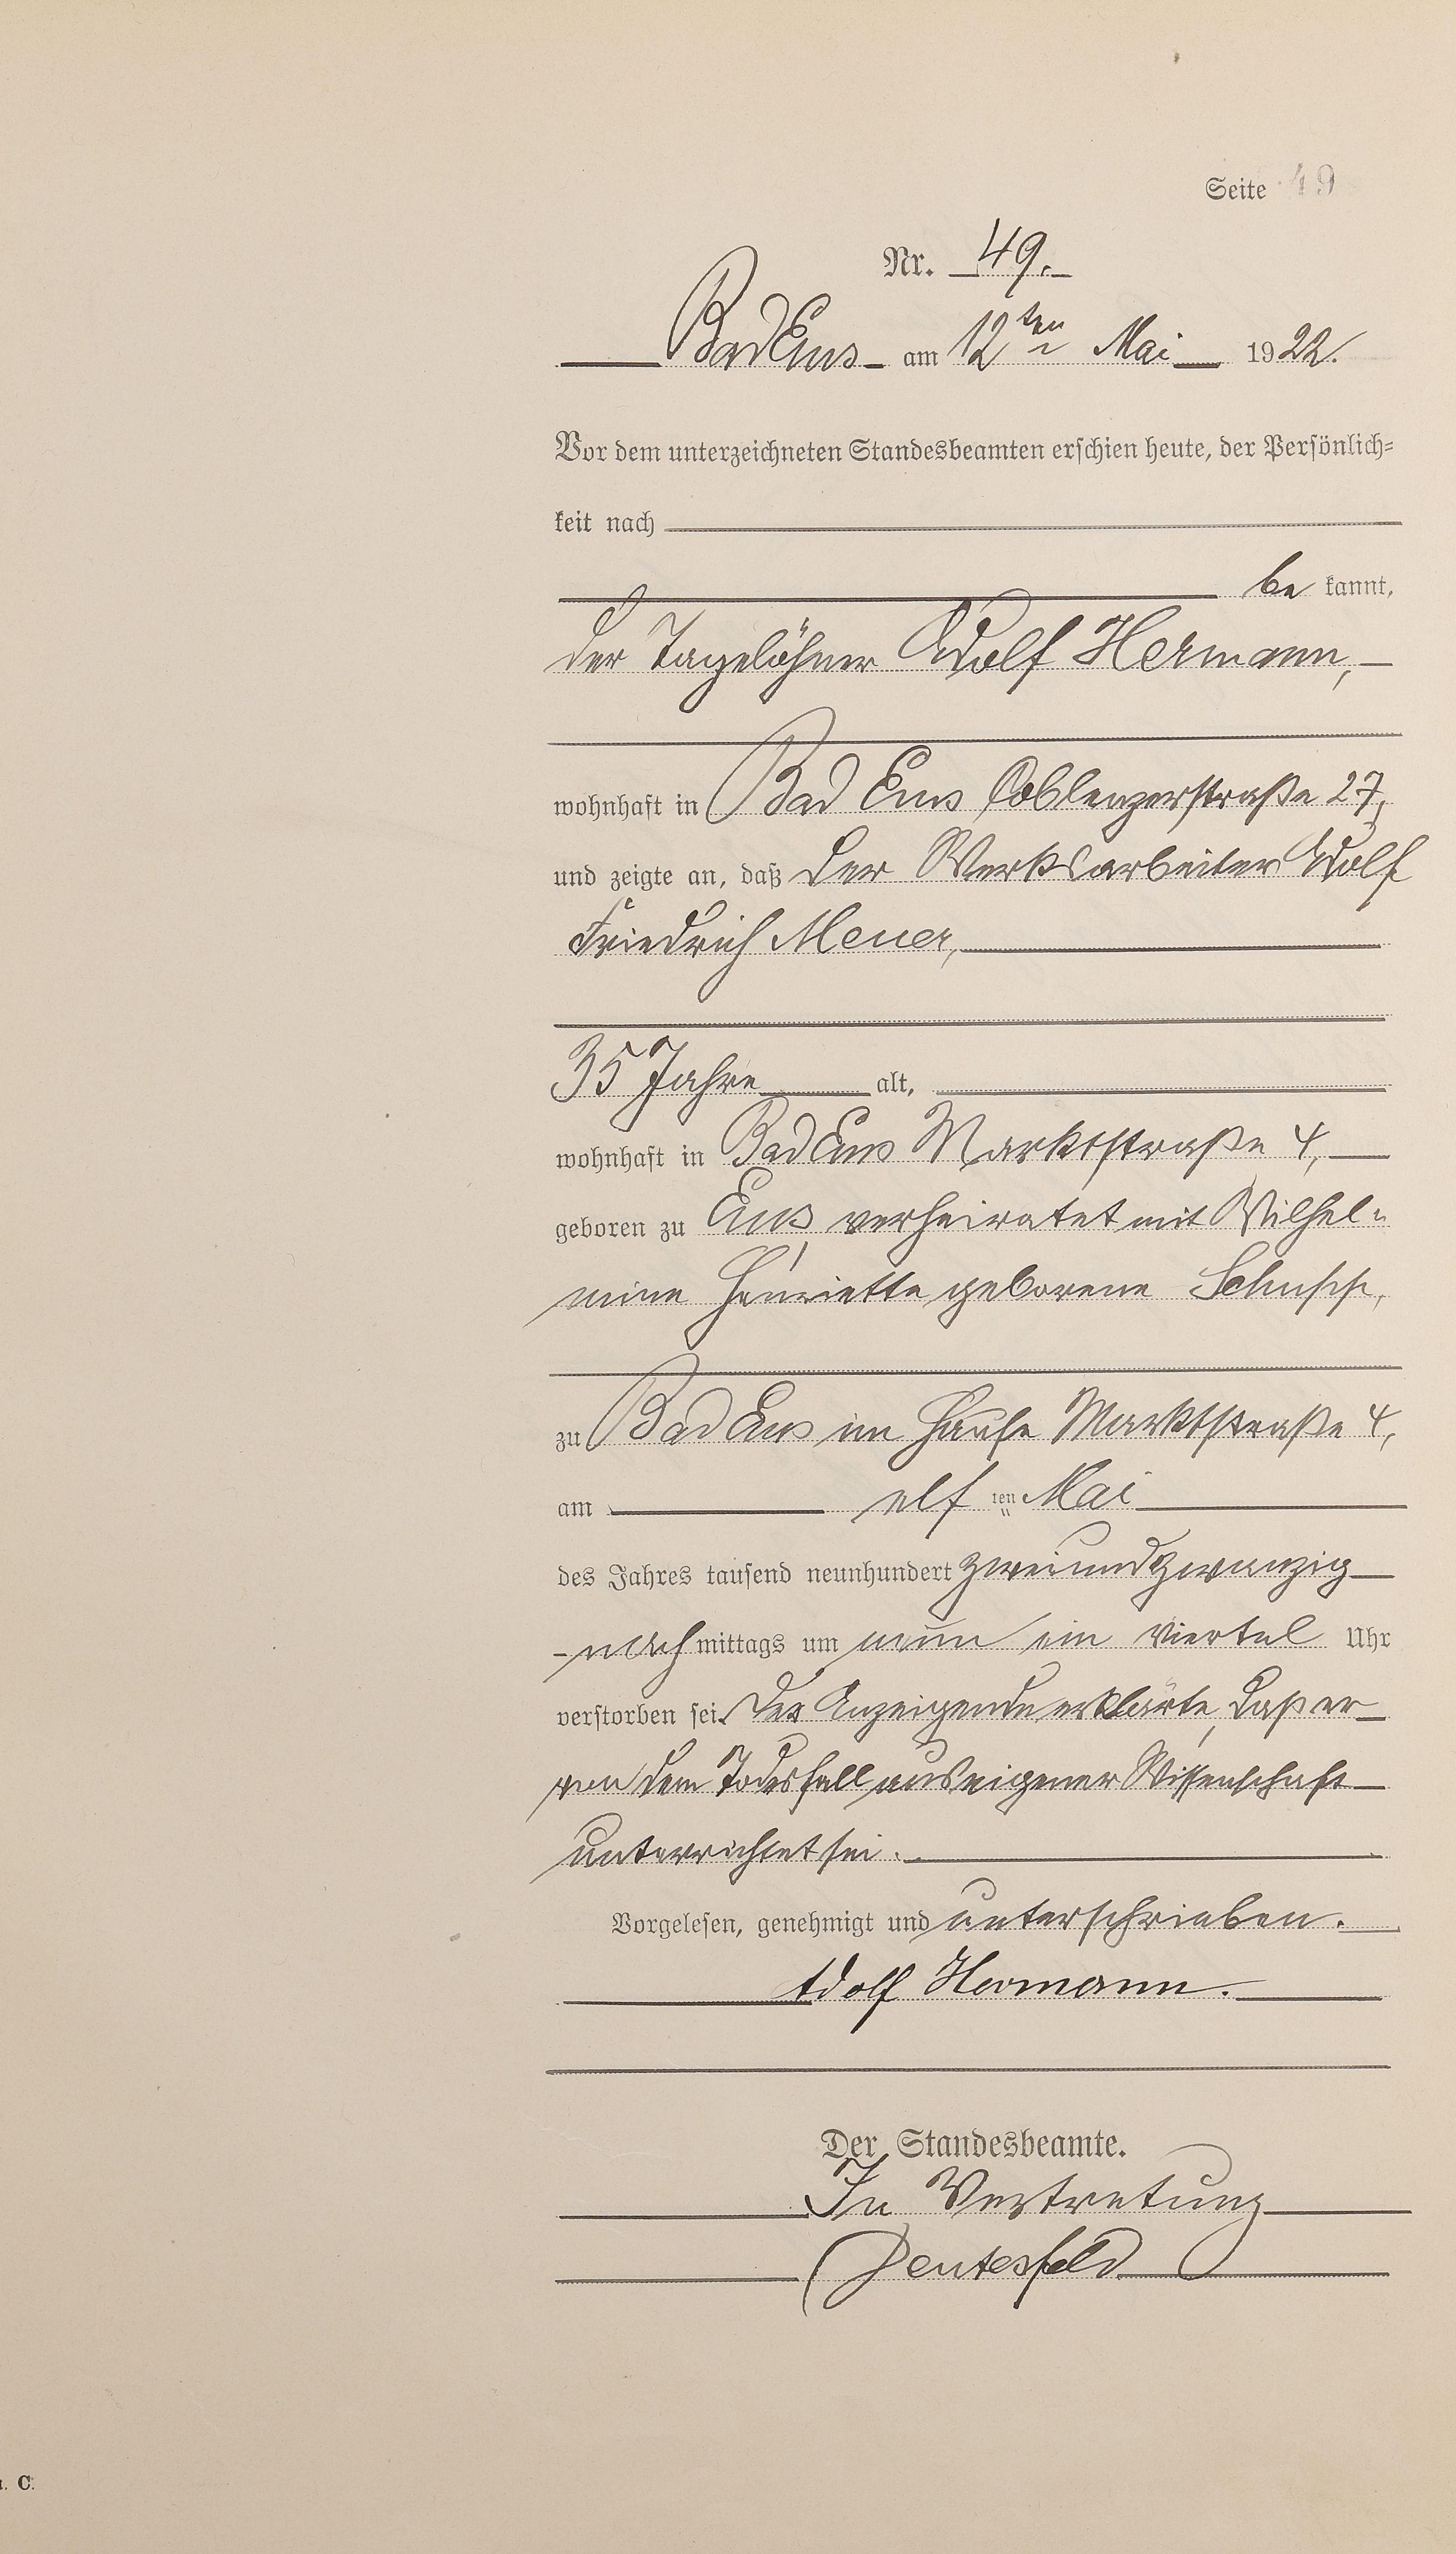 Seite 49
Nr. 49.
Bad Ems am 12ten Mai 1922.
Vor dem unterzeichneten Standesbeamten erschien heute, der Persönlich=
keit nach
be kannt,
der Tagelöhner Adolf Hermann,
wohnhaft in Bad Ems Coblenzerstraße 27,
und zeigte an, daß der Werksarbeiter Adolf
Friedrich Meuer,
35 Jahre alt,
wohnhaft in Bad Ems Marktstraße 4,
geboren zu Ems, verheiratet mit Wilhel=
mine Henriette geborene Schupp,
zu Bad Ems im Hause Marktstraße 4,
am elf ten Mai
des Jahres tausend neunhundert zweiundzwanzig
nach mittags um neun ein viertel Uhr
verstorben sei. Der Anzeigende erklärte, daß er
von dem Todesfall aus eigener Wissenschaft
unterrichtet sei.
Vorgelesen, genehmigt und unterschrieben.
Adolf Hermann.
Der Standesbeamte.
In Vertretung
C.